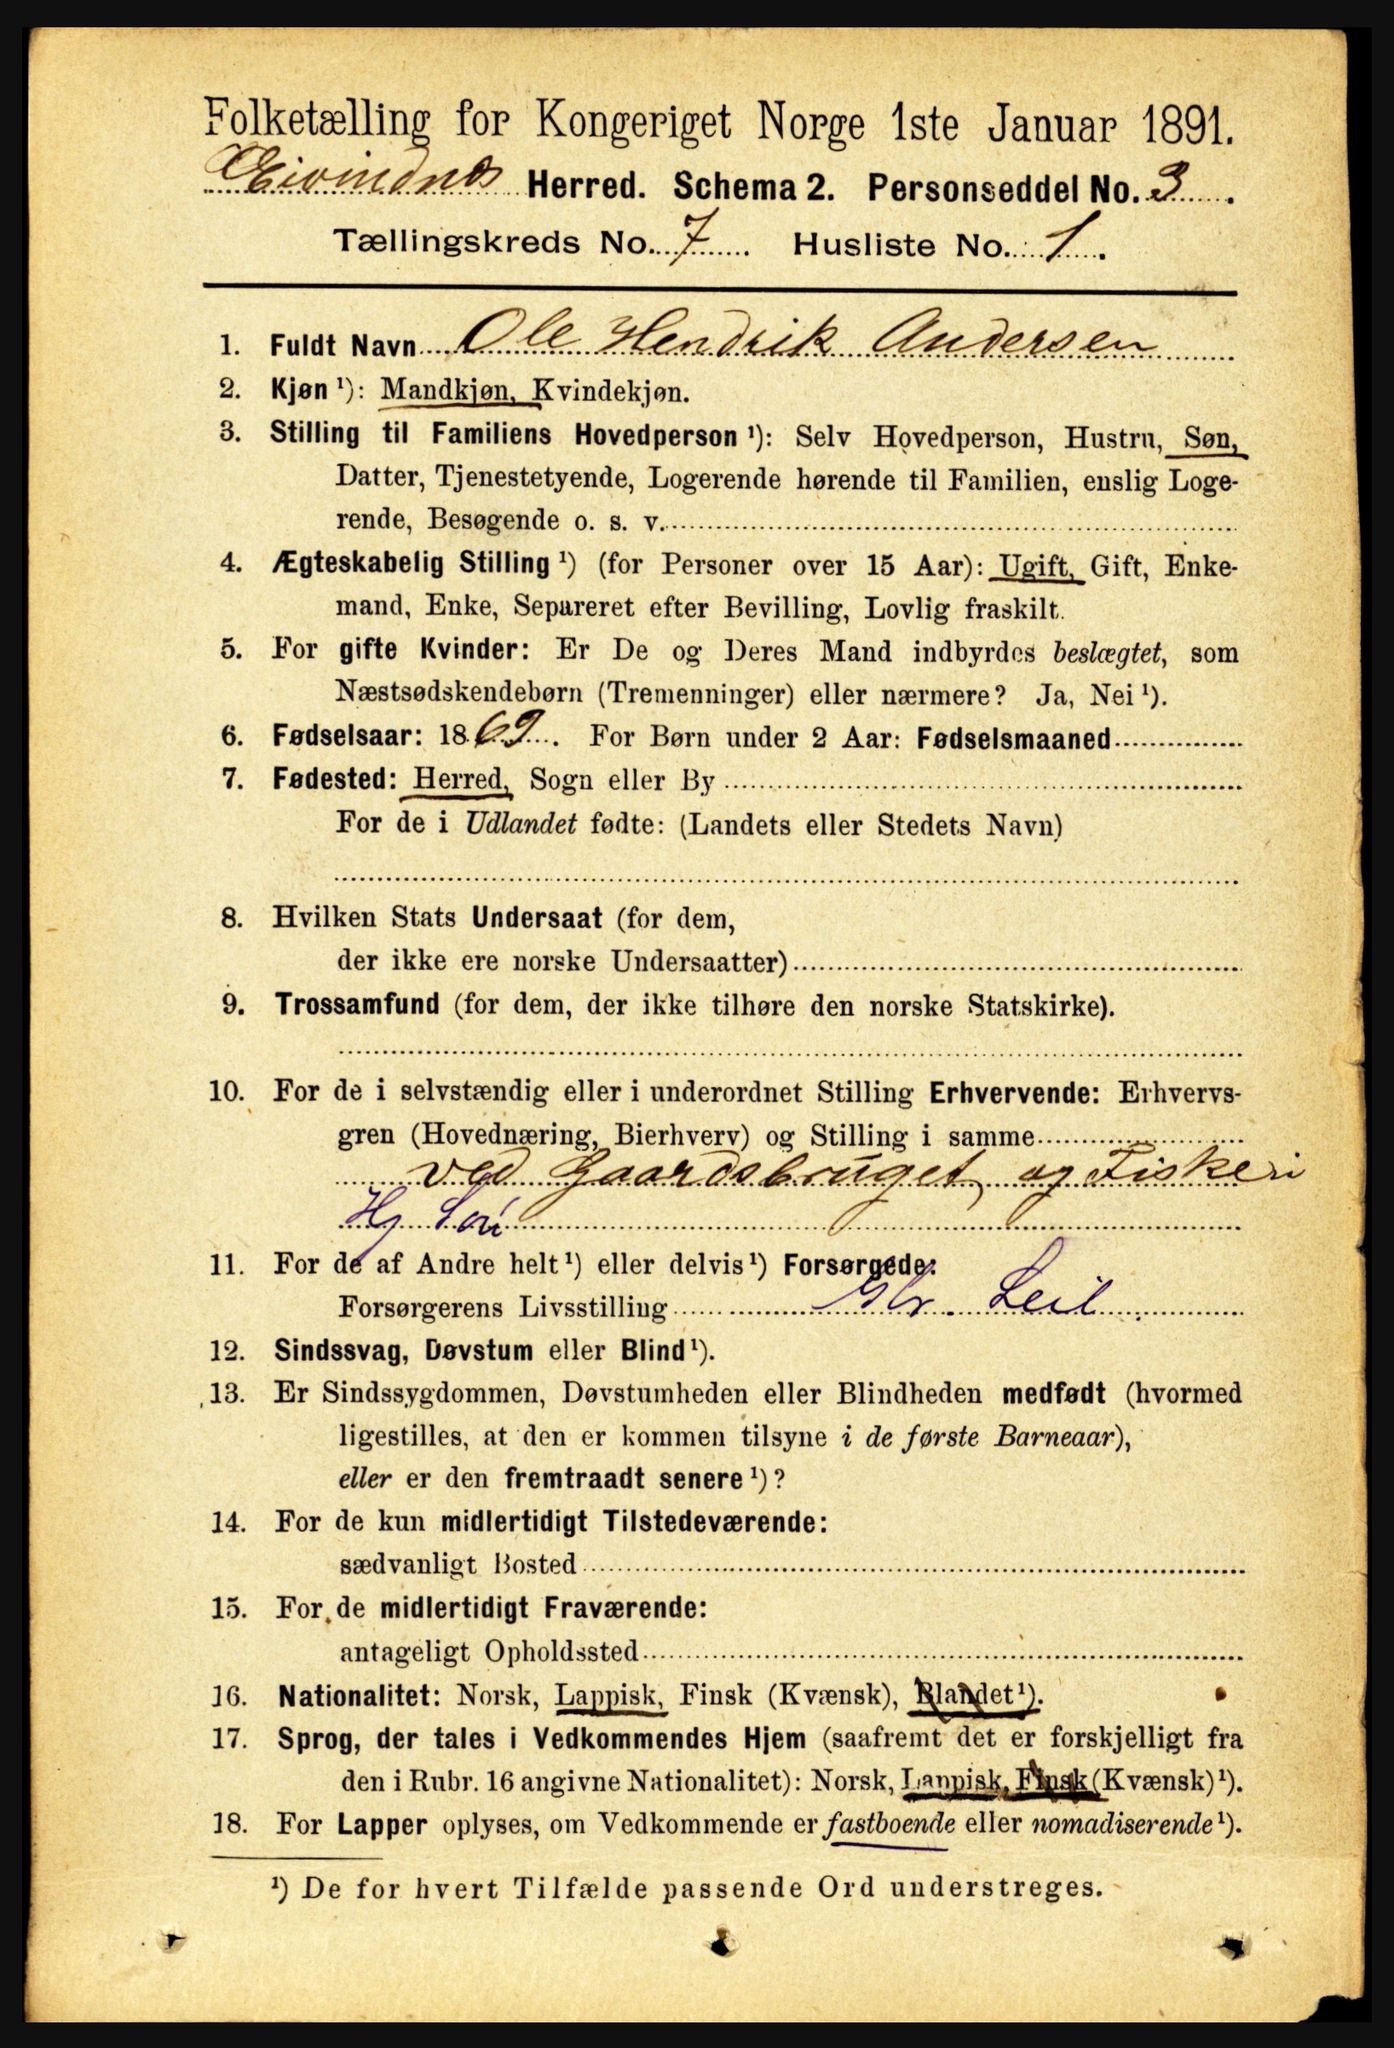 Folketælling for Kongeriget Norge 1ste Januar 1891.
Herred. Schema 2. Personseddel No. 3.
Tællingskreds No. 7. Husliste No. 1.
1. Fuldt Navn Ole Hendrik Andersen
2. Kjøn ¹): Mandkjøn, Kvindekjøn.
3. Stilling til Familiens Hovedperson ¹): Selv Hovedperson, Hustru, Søn,
Datter, Tjenestetyende, Logerende hørende til Familien, enslig Loge-
rende, Besøgende o. s. v.
4. Ægteskabelig Stilling ¹) (for Personer over 15 Aar): Ugift, Gift, Enke-
mand, Enke, Separeret efter Bevilling, Lovlig fraskilt.
5. For gifte Kvinder: Er De og Deres Mand indbyrdes beslægtet, som
Næstsødskendebørn (Tremenninger) eller nærmere? Ja, Nei ¹).
6. Fødselsaar: 1869. For Børn under 2 Aar: Fødselsmaaned
7. Fødested: Herred, Sogn eller By
For de i Udlandet fødte: (Landets eller Stedets Navn)
8. Hvilken Stats Undersaat (for dem,
der ikke ere norske Undersaatter)
9. Trossamfund (for dem, der ikke tilhøre den norske Statskirke).
10. For de i selvstændig eller i underordnet Stilling Erhvervende: Erhvervs-
gren (Hovednæring, Bierhverv) og Stilling i samme
ved Gaardsbruget og Fiskeri
Hj
11. For de af Andre helt ¹) eller delvis ¹) Forsørgede:
Forsørgerens Livsstilling
12. Sindssvag, Døvstum eller Blind ¹).
13. Er Sindssygdommen, Døvstumheden eller Blindheden medfødt (hvormed
ligestilles, at den er kommen tilsyne i de første Barneaar),
eller er den fremtraadt senere ¹)?
14. For de kun midlertidigt Tilstedeværende:
sædvanligt Bosted
15. For de midlertidigt Fraværende:
antageligt Opholdssted
16. Nationalitet: Norsk, Lappisk, Finsk (Kvænsk), Blandet ¹).
17. Sprog, der tales i Vedkommendes Hjem (saafremt det er forskjelligt fra
den i Rubr. 16 angivne Nationalitet): Norsk, Lappisk, Finsk (Kvænsk) ¹).
18. For Lapper oplyses, om Vedkommende er fastboende eller nomadiserende ¹).
¹) De for hvert Tilfælde passende Ord understreges.